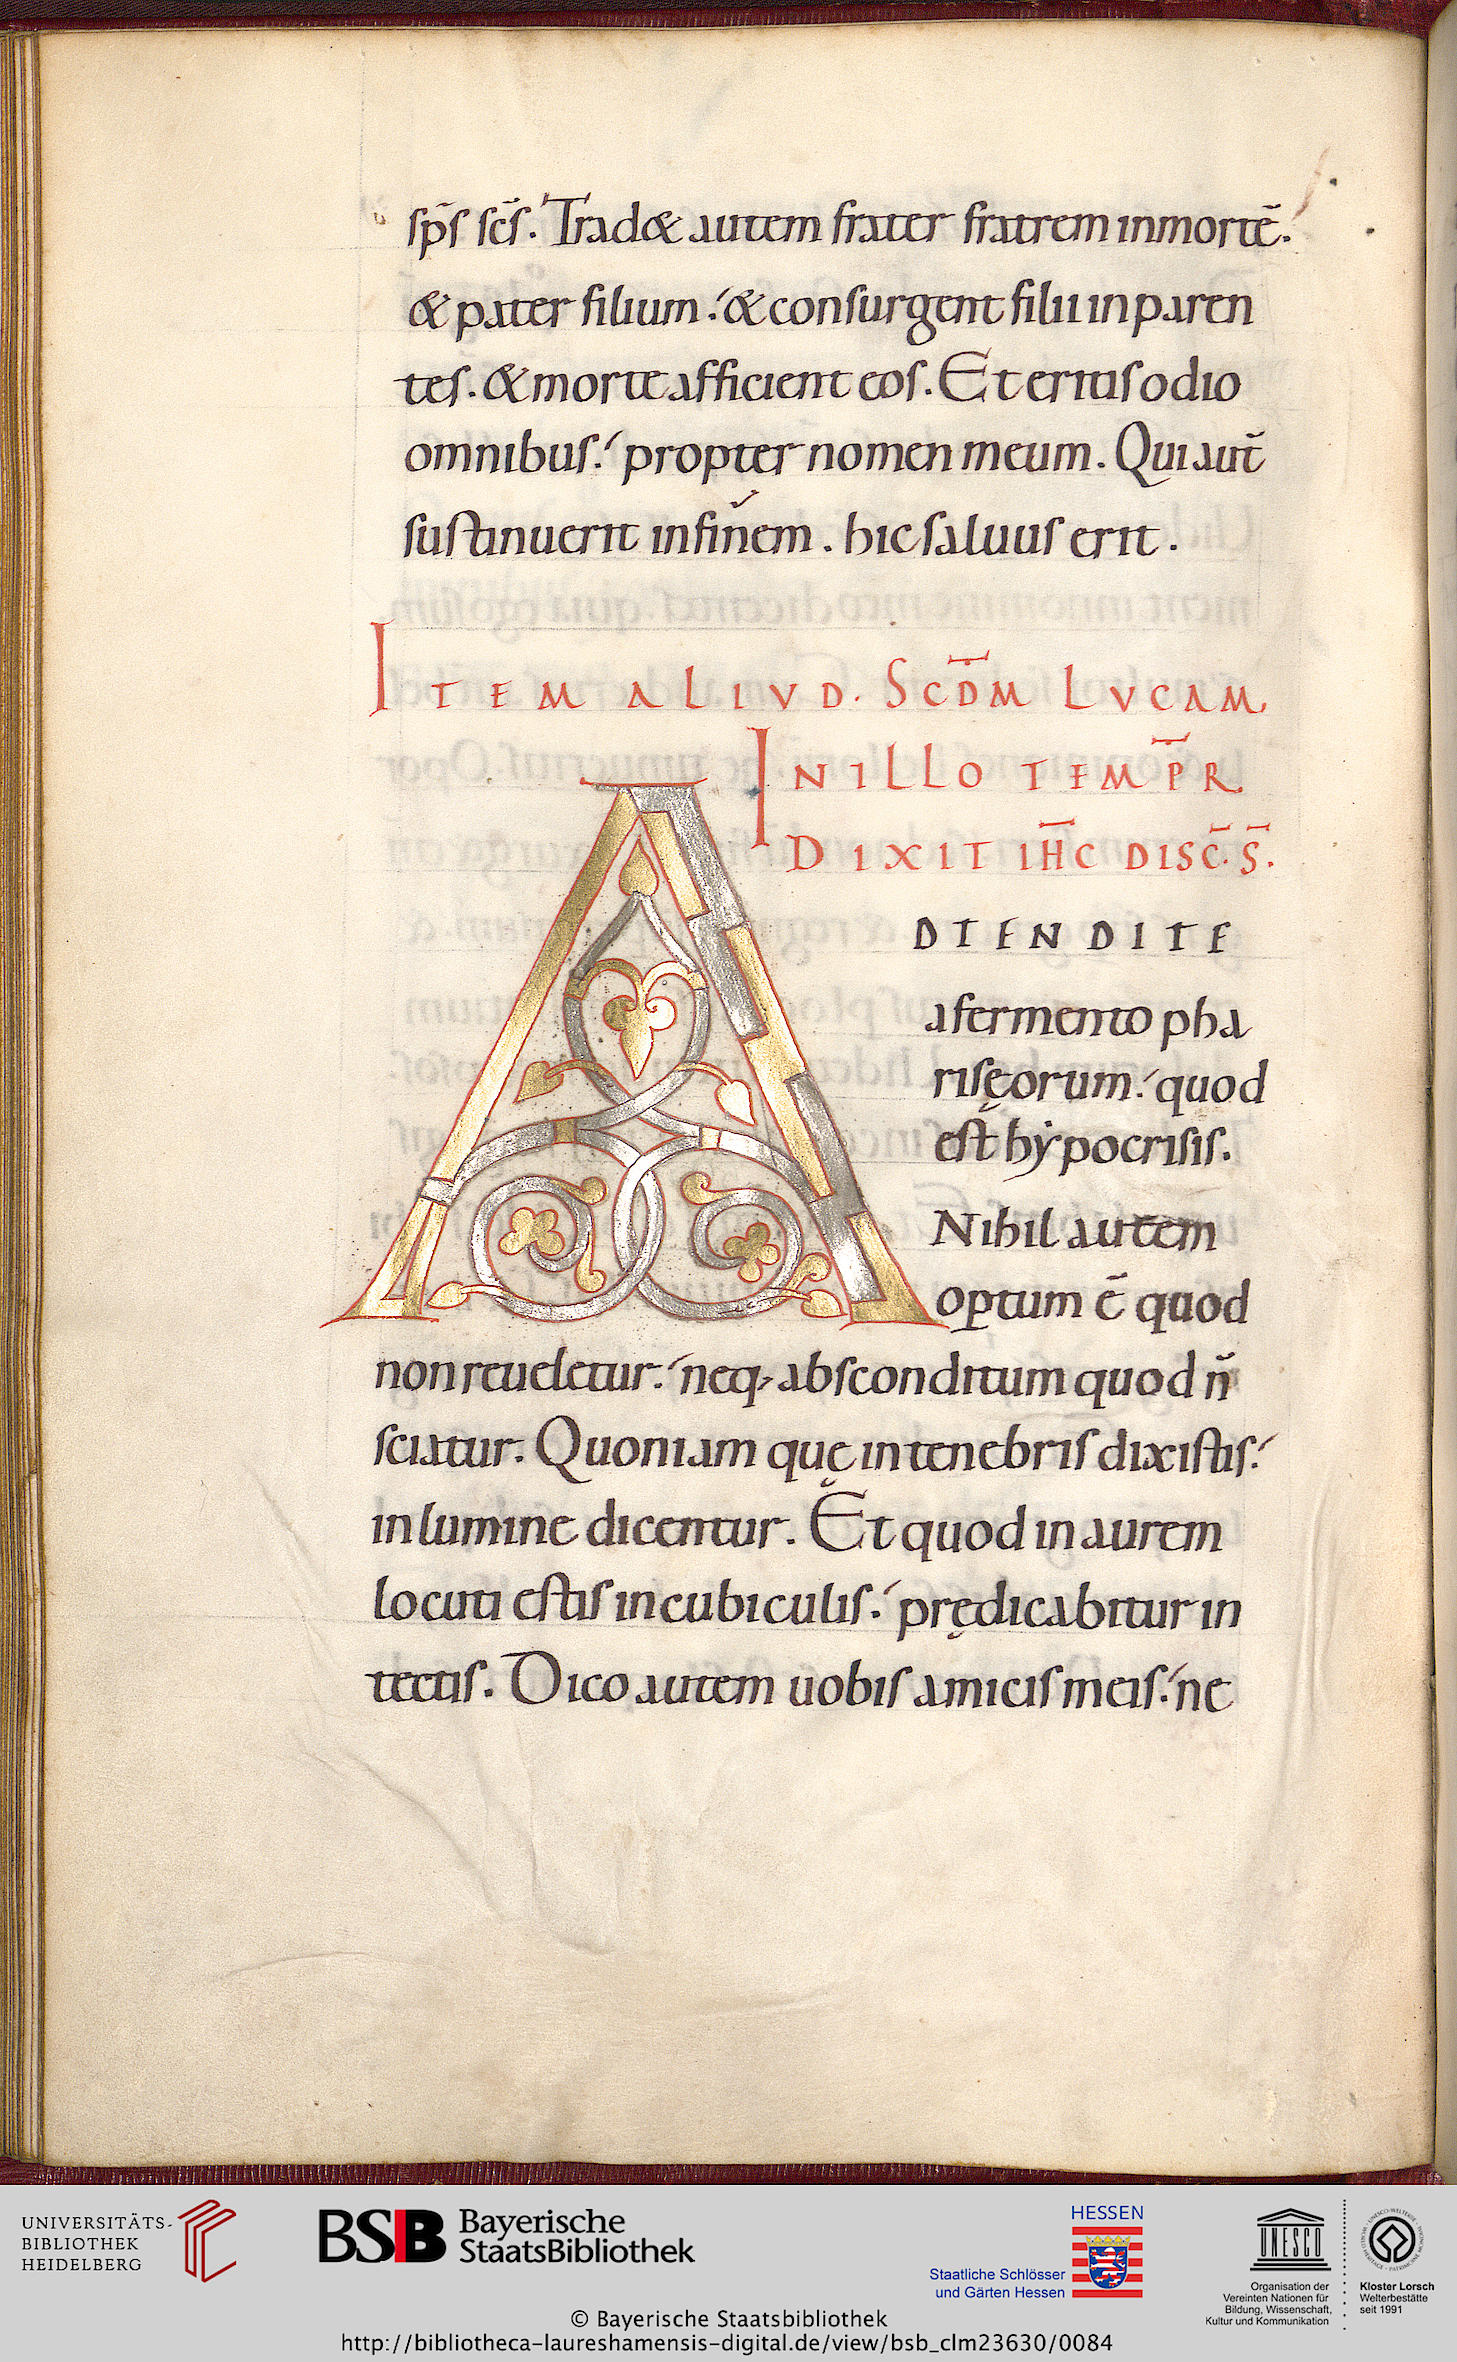 sp̄s sc̄s. Trad& autem frater fratrem inmortē.
& pater filium. & consurgent filii inparen
tes. & morte afficient eos. Et eritis odio
omnibus. propter nomen meum. Qui aut̄
sustinuerit infinem. hic saluus erit.
ITEM ALIVD. SCD̄M LVCAM
IN ILLO TEMP̄R
DIXIT IH̄C DISC̄. S̄.
A DTENDITE
a fermento pha
risęorum. quod
est hẏpocrisis.
Nihil autem
optum ē quod
non reueletur. neq; absconditum quod n̄
sciatur. Quoniam quę in tenebris dixistis.
in lumine dicentur. Et quod in aurem
locuti estis in cubiculis. prędicabitur in
tectis. Dico autem uobis amicis meis. ne
UNIVERSITÄTS-
BIBLIOTHEK
HEIDELBERG
BSB Bayerische
StaatsBibliothek
HESSEN
Staatliche Schlösser
und Gärten Hessen
UNESCO
Organisation der
Vereinten Nationen für
Bildung, Wissenschaft,
Kultur und Kommunikation
Kloster Lorsch
Welterbestätte
seit 1991
© Bayerische Staatsbibliothek
http://bibliotheca-laureshamensis-digital.de/view/bsb_clm23630/0084